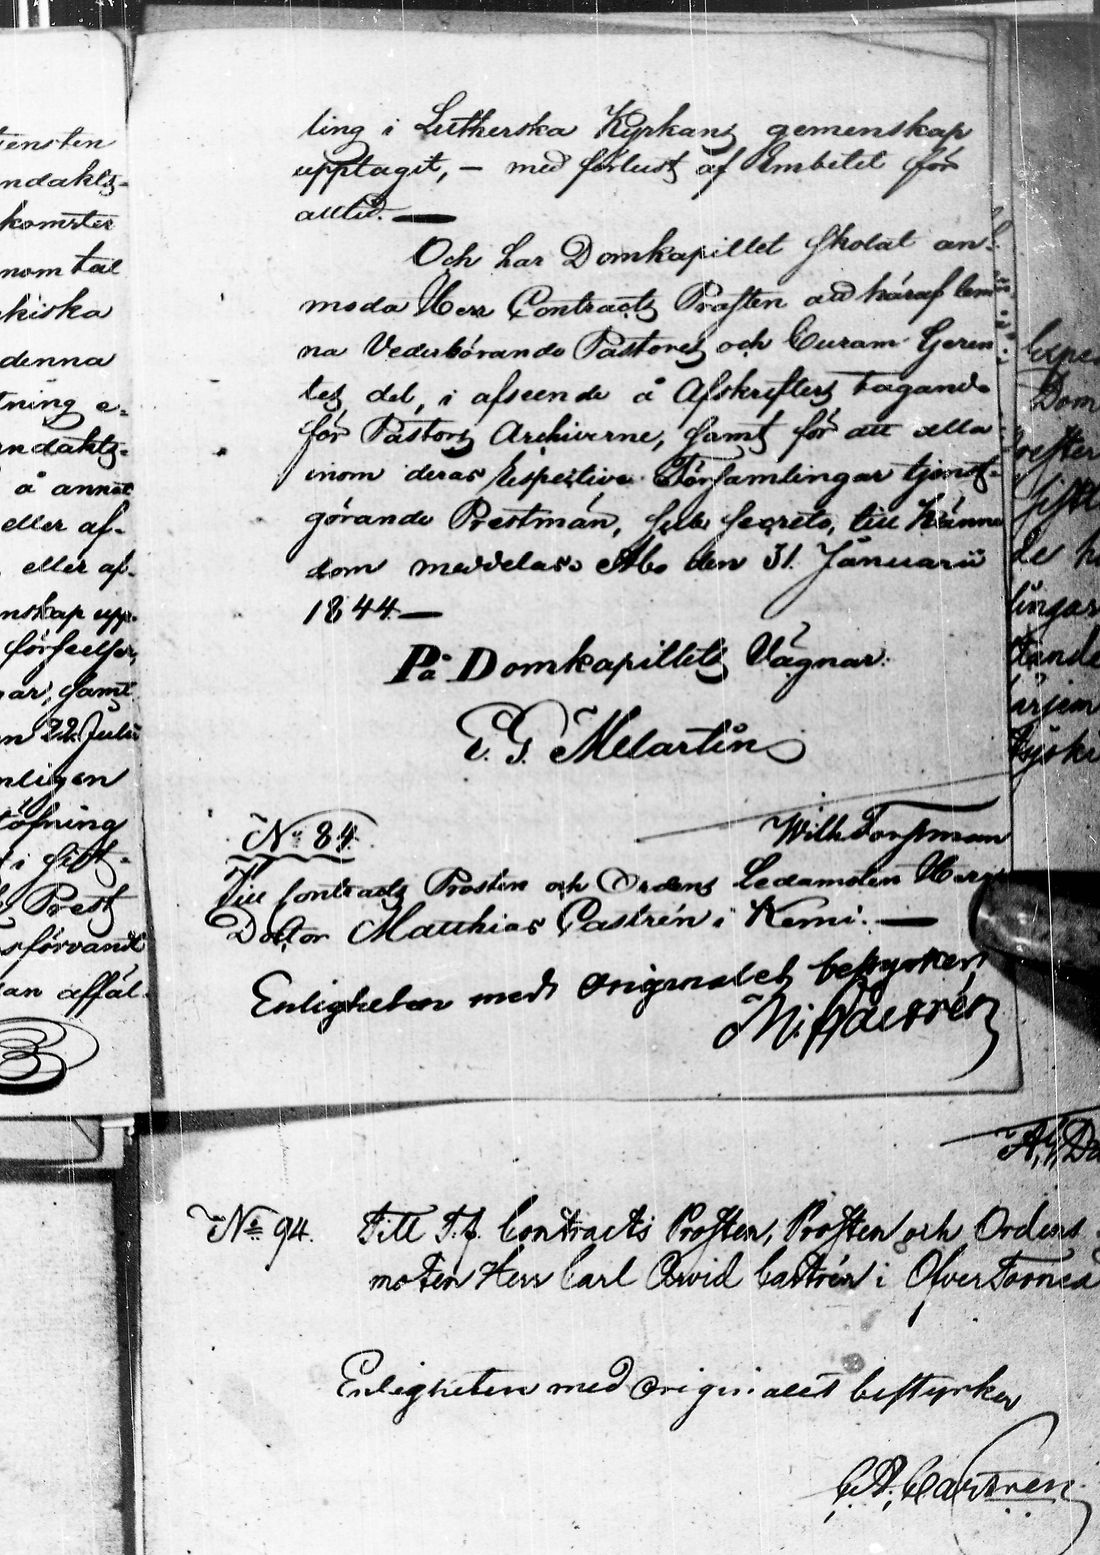 tensten
ndakts-
komster
nom tal
kiska
denna
tning e-
ndakts-
å annat
eller af-
eller af-
nskap upp-
förseelser,
ar, samt
n 22 Juli
nligen
töfning
i sist-
Prest
sförvandt
an affäl-
ling i Lutherska Kyrkans gemenskap
upptagit, – med förlust af Embetet för
alltid. —
Och har Domkapitlet skolat an-
moda Herr Contracts Prosten att häraf lem
na Vederbörande Pastores och Curam Geren
tes del, i afseende å Afskrifters tagande
för Pastors Archiverne, samt för att alla
inom deras respective Församlingar tjenst-
görande Prestmän, sub secreto, till känne
dom meddelas. Åbo den 31. Januarii
1844. —
På Domkapitlets Vägnar:
E. G. Melartin
Wilh Forssman
No 84.
Till Contracts Prosten och Ordens Ledamoten Herr
Doktor Matthias Castrén i Kemi. —
Enligheten med Originalet bestyrker
M. Castrén
Expe
Dom
efter
sist
de h
lingar
tande
ärjem
Ryski
No 94. Till T.f. Contracts Prosten, Prosten och Ordens
moten Herr Carl Arvid Castrén i Öfver Torneå
Enligheten med Originalet bestyrker
C. A. Castrén